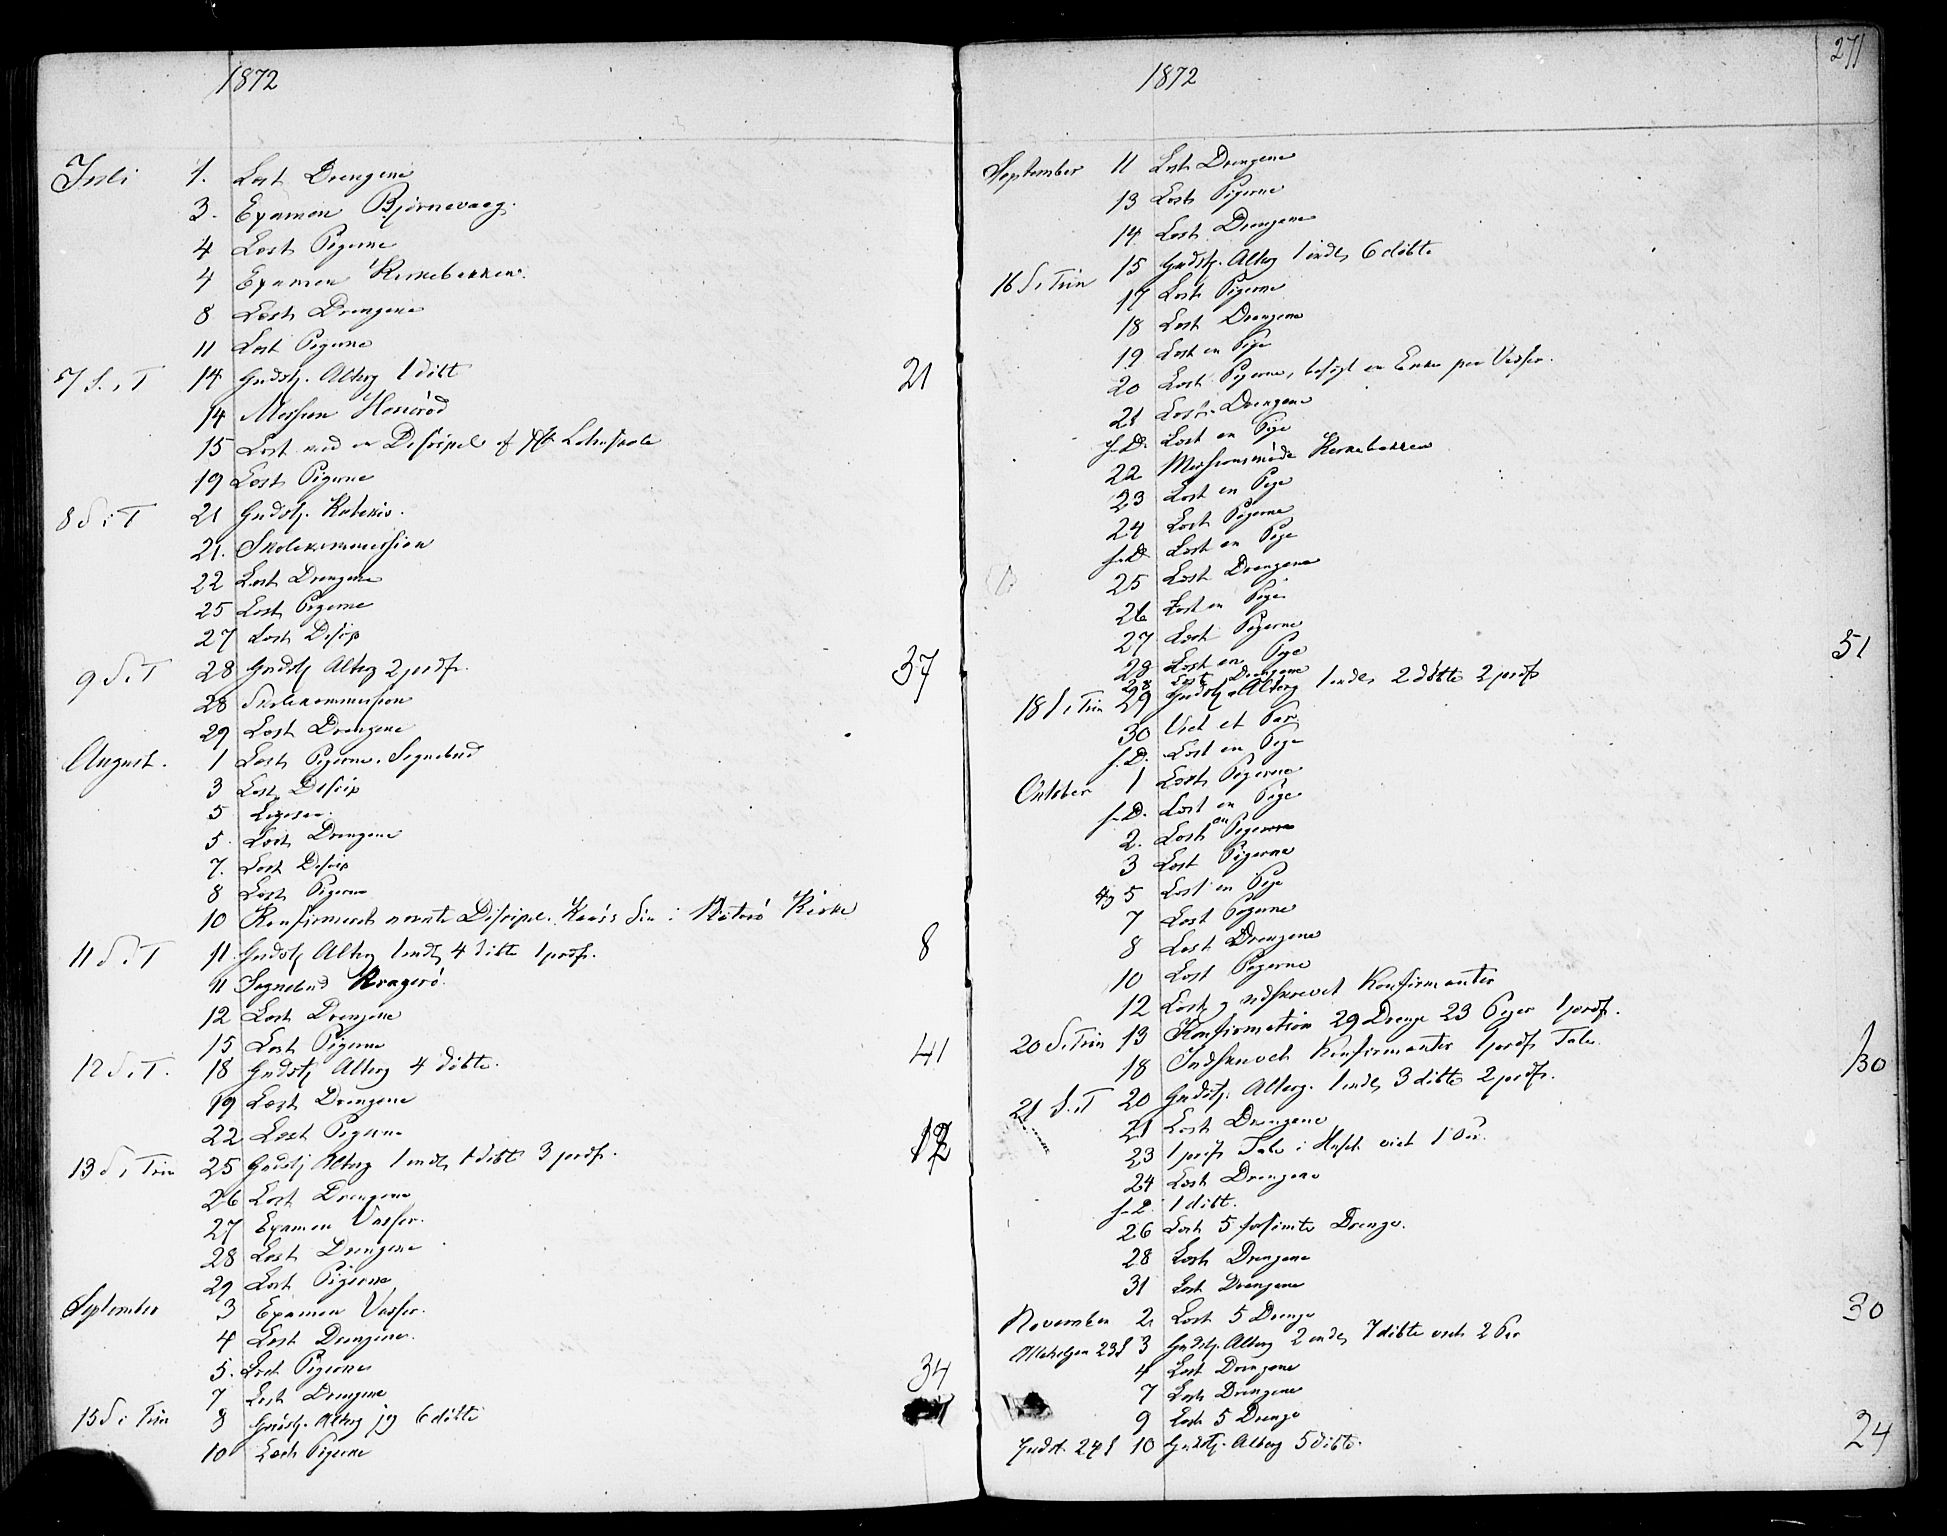 1872
Juli 1. Læst Drengene
3. Examen Bjørnevaag.
4 Læst Pigerne
4 Examen Kirkebakken.
8 Læst Drengene
11 Læst Pigerne
7 S. i T 14 Gudstj. Alterg 1 døbt 21
14 Mission
15 Læst med en Discipel af
19 Læst Pigerne
8 S i T 21 Gudstj. Katekis.
21. Skolekommission
22 Læst Drengene
25 Læst Pigerne
27 Læst Discip
9 S. i T 28 Gudstj Alterg 2 præs. 37
28 Skolekommission
29 Læst Drengene
August. 1 Læst Pigerne. Sognebud
3 Læst Discip
5
5. Læst Drengene
7. Læst Discip
8 Læst Pigerne
10 Konfirmeret nævnte Discipel. i Kirke
11 S. i T 11 Gudstj Alterg 1 indl, 4 døbte 1 præs. 8
11 Sognebud Kragerø.
12 Læst Drengene
15 Læst Pigerne
12 S. i T. 18 Gudstj Alterg 4 døbte. 41
19 Læst Drengene
22 Læst Pigerne
13 S. i Trin 25 Gudstj Alterg 1 indl, 1 døbt 3 præs. 12
26 Læst Drengene
27 Examen Vasser.
28 Læst Drengene
29 Læst Pigerne
September 3 Examen Vasser.
4 Læst Drengene.
5. Læst Pigerne
7 Læst Drengene 34
15 S i Trin 8 Gudstj. Alterg 6 døbte
10 Læst Pigerne
271
1872
September 11 Læst Drengene
13 Læst Pigerne
14 Læst Drengene
16 S. i Trin 15 Gudstj. Alterg 1 indl, 6 døbte
17 Læst Pigerne
18 Læst Drengene
19 Læst en Pige
20 Læst Pigerne, besøgt en Enke paa Vasser.
21 Læst Drengene
s. D. Læst en Pige
22 Missionsmøde Kirkebakken
23 Læst en Pige
24 Læst Pigerne
s. D. Læst en Pige
25 Læst Drengene
26 Læst en Pige
27 Læst Pigerne
28 Læst en Pige 51
28 Læst Drengene
18 S. i Trin 29 Gudstj Alterg 1 indl, 2 døbte 2 præs
30 Viet et Par
s. D. Læst en Pige
Oktober 1 Læst Pigerne
s. D. Læst en Pige
2. Læst en Pige
3 Læst Pigerne
5 Læst en Pige
7 Læst Pigerne
8 Læst Drengene
10 Læst Pigerne
12 Læst og indskrevet Konfirmanter
20 S. i Trin 13 Konfirmation 29 Drenge 23 Piger 1 præs. 130
18 Indskrevet Konfirmanter 1 præs Tale.
21 S. i T 20 Gudstj. Alterg. 1 indl, 3 døbte 2 præs.
21 Læst Drengene
23 1 præs Tale i Huset viet 1 Par.
24 Læst Drengene
s. D. 1 døbt.
26 Læst 5 forsømte Drenge.
28 Læst Drengene
31 Læst Drengene
November 2 Læst 5 Drenge 30
Allehelgen 23 S 3 Gudstj. Alterg 2 indl, 7 døbte viet 2 Par
4 Læst Drengene
7 Læst Drengene
9 Læst 5 Drenge
Gudst. 24 S 10 Gudstj. Alterg 5 døbte. 24